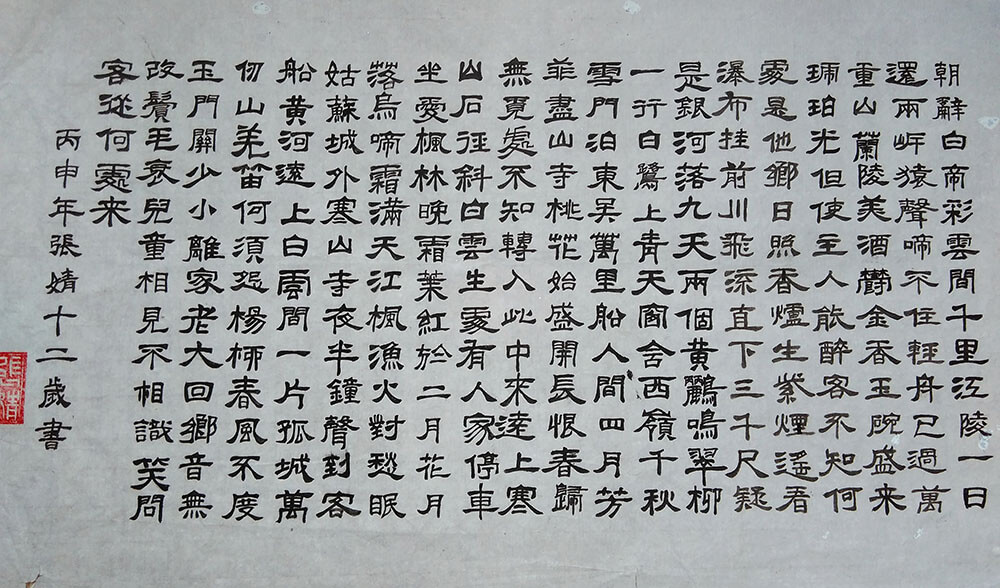 朝辭白帝彩雲間千里江陵一日
還兩岍猿聲啼不住輕舟已過萬
重山蘭陵美酒欝金香玉碗盛来
琥珀光但使主人能醉客不知何
處是他鄉日照香爐生紫煙遙看
瀑布挂前川飛流直下三千尺疑
是銀河落九天兩個黃鸝鳴翠柳
一行白鷺上青天窗含西嶺千秋
雪門泊東吳萬里船人間四月芳
菲盡山寺桃花始盛開長恨春歸
無覓處不知轉入此中來遠上寒
山石徑斜白雲生處有人家停車
坐愛楓林晚霜葉紅於二月花月
落烏啼霜滿天江楓漁火對愁眠
姑蘇城外寒山寺夜半鐘聲到客
船黃河遠上白雲間一片孤城萬
仞山羌笛何須怨楊柳春風不度
玉門關少小離家老大回鄉音無
改鬢毛衰兒童相見不相識笑問
客從何處来
丙申年張婧十二歲書